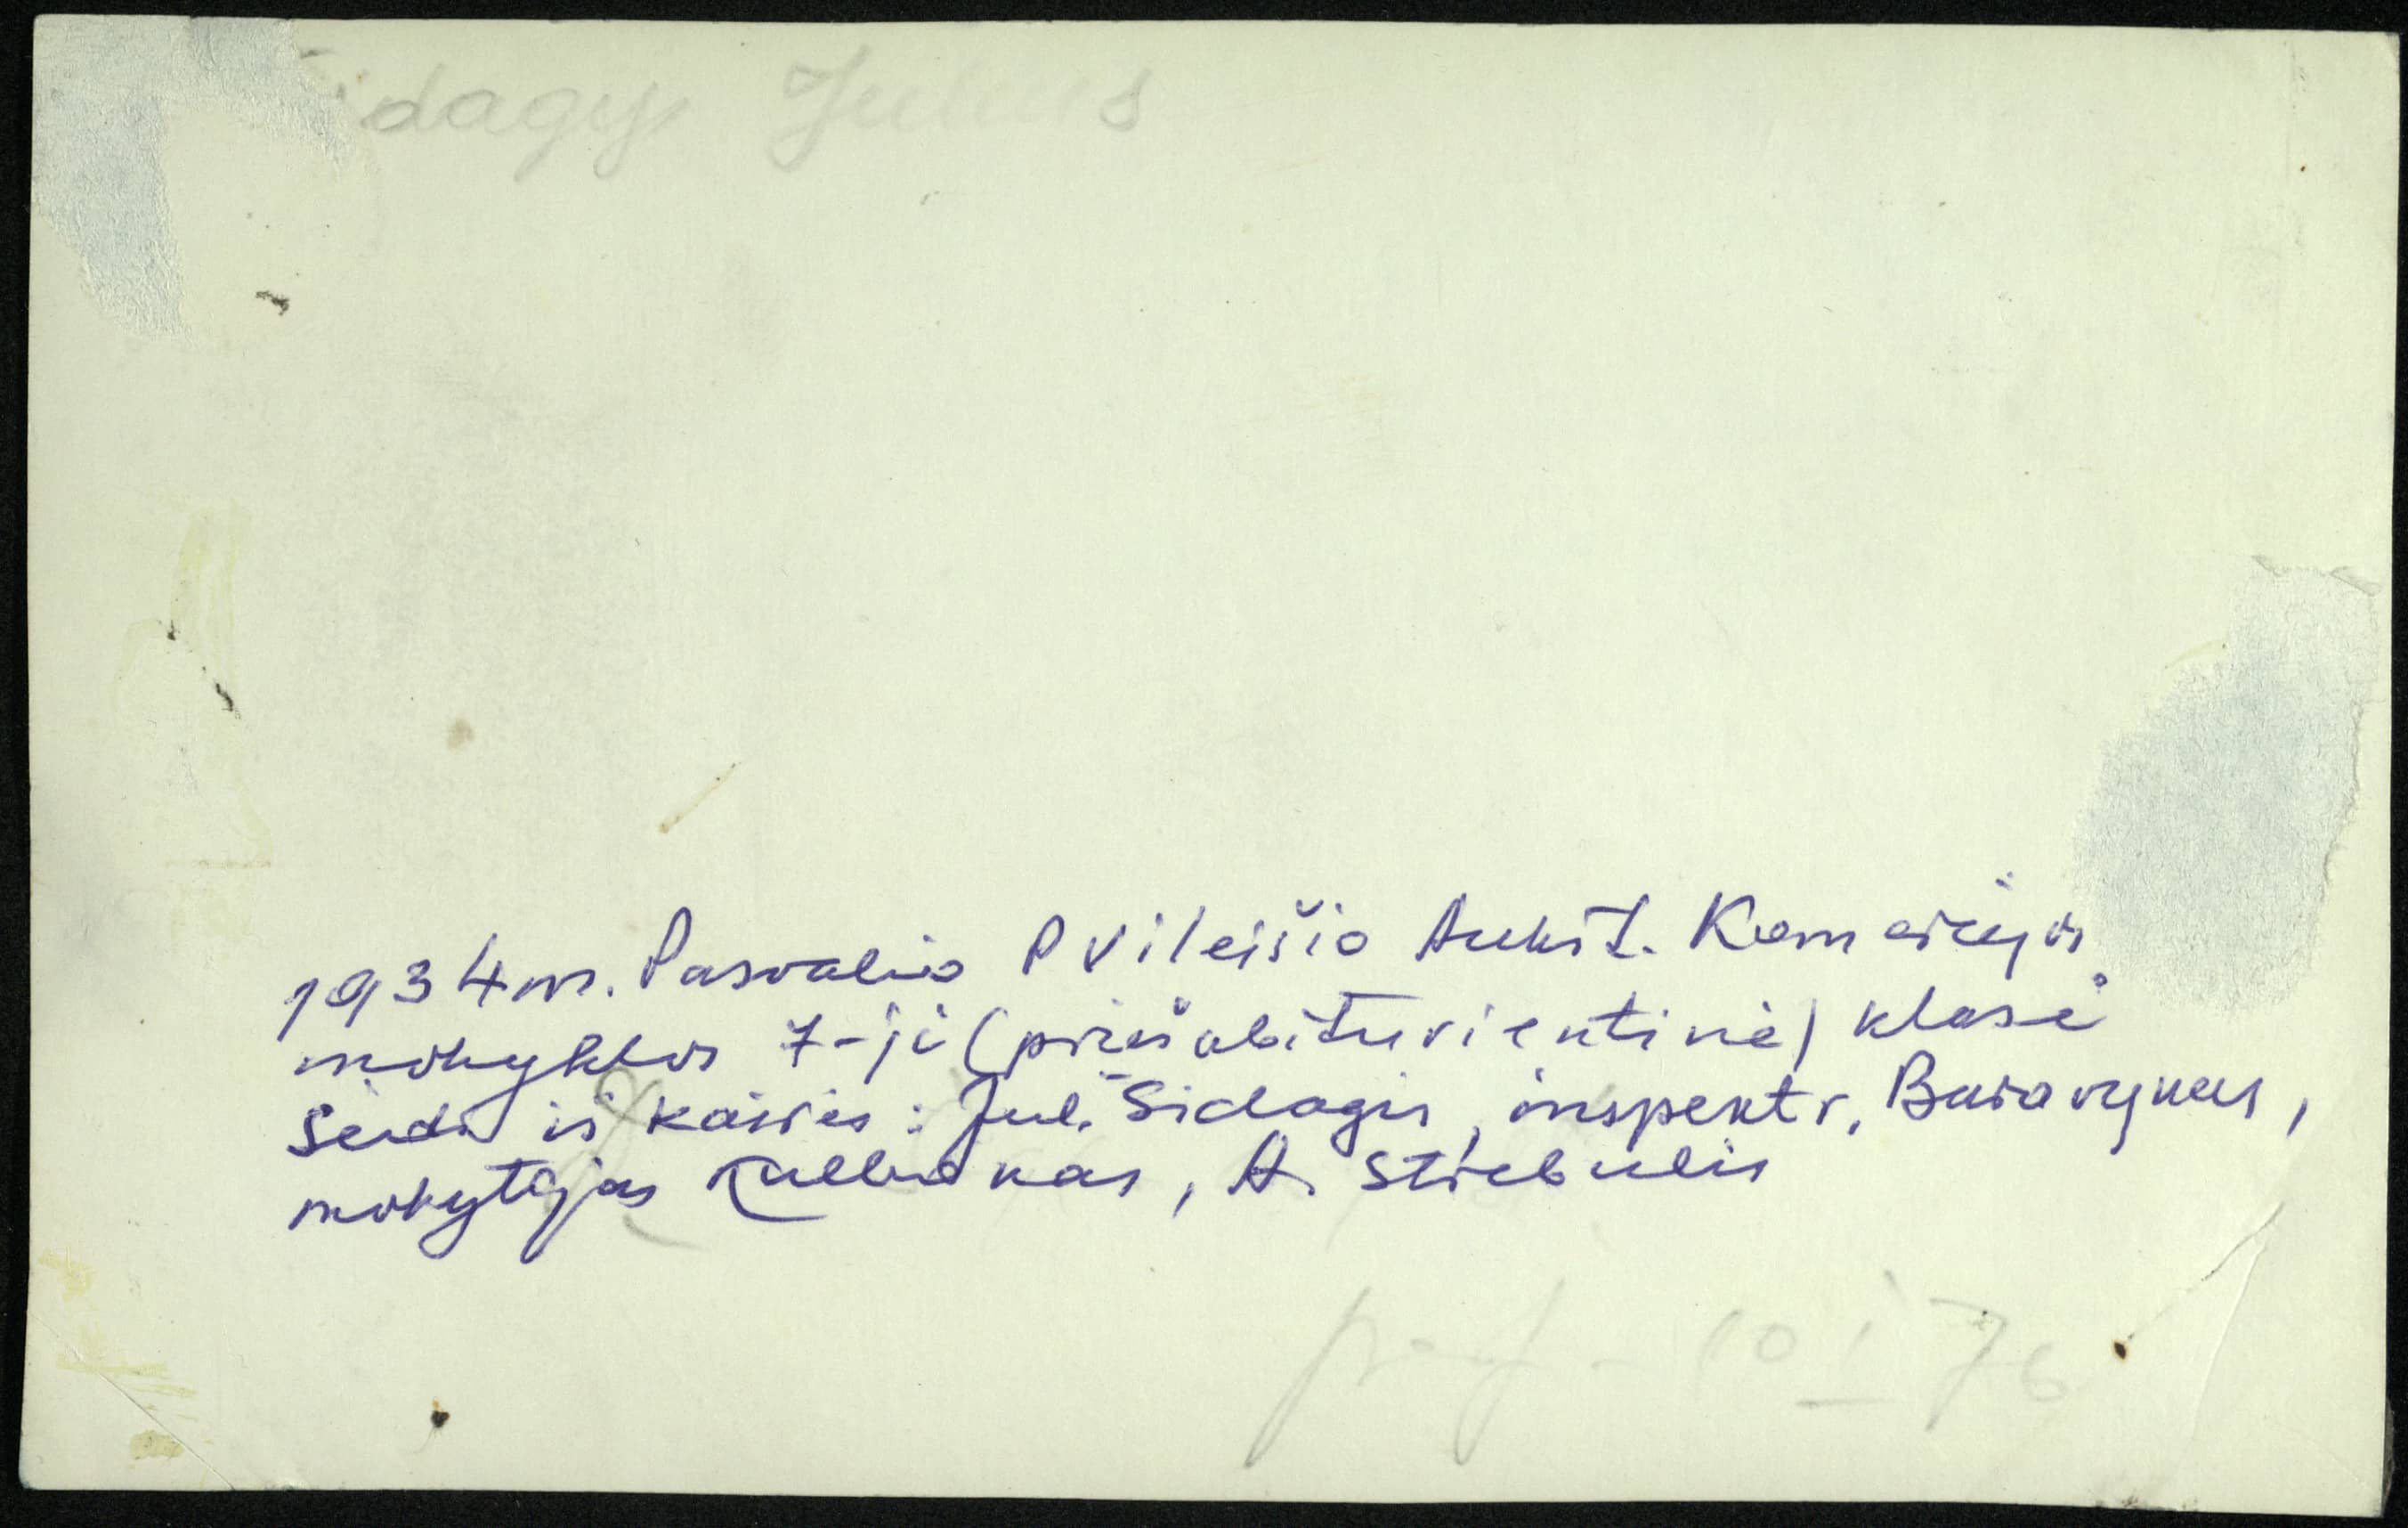 dagys Julius
1934 m. Pasvalio P Vileišio Aukšt. Komercijos
mokyklos 7-ji (priešabiturientinė) klasė
Sėdi iš kairės: Jul. Sidagis, inspekt r. Baravykas,
mokytojas A. Striebulis
10 I 76